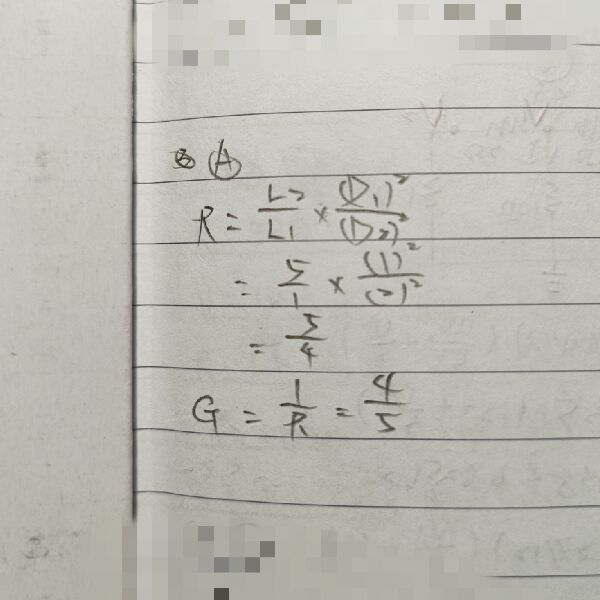 ⑧ Ⓐ
R = L2/L1 × (D1)²/(D2)²
= 5/1 × (1)²/(2)²
= 5/4
G = 1/R = 4/5